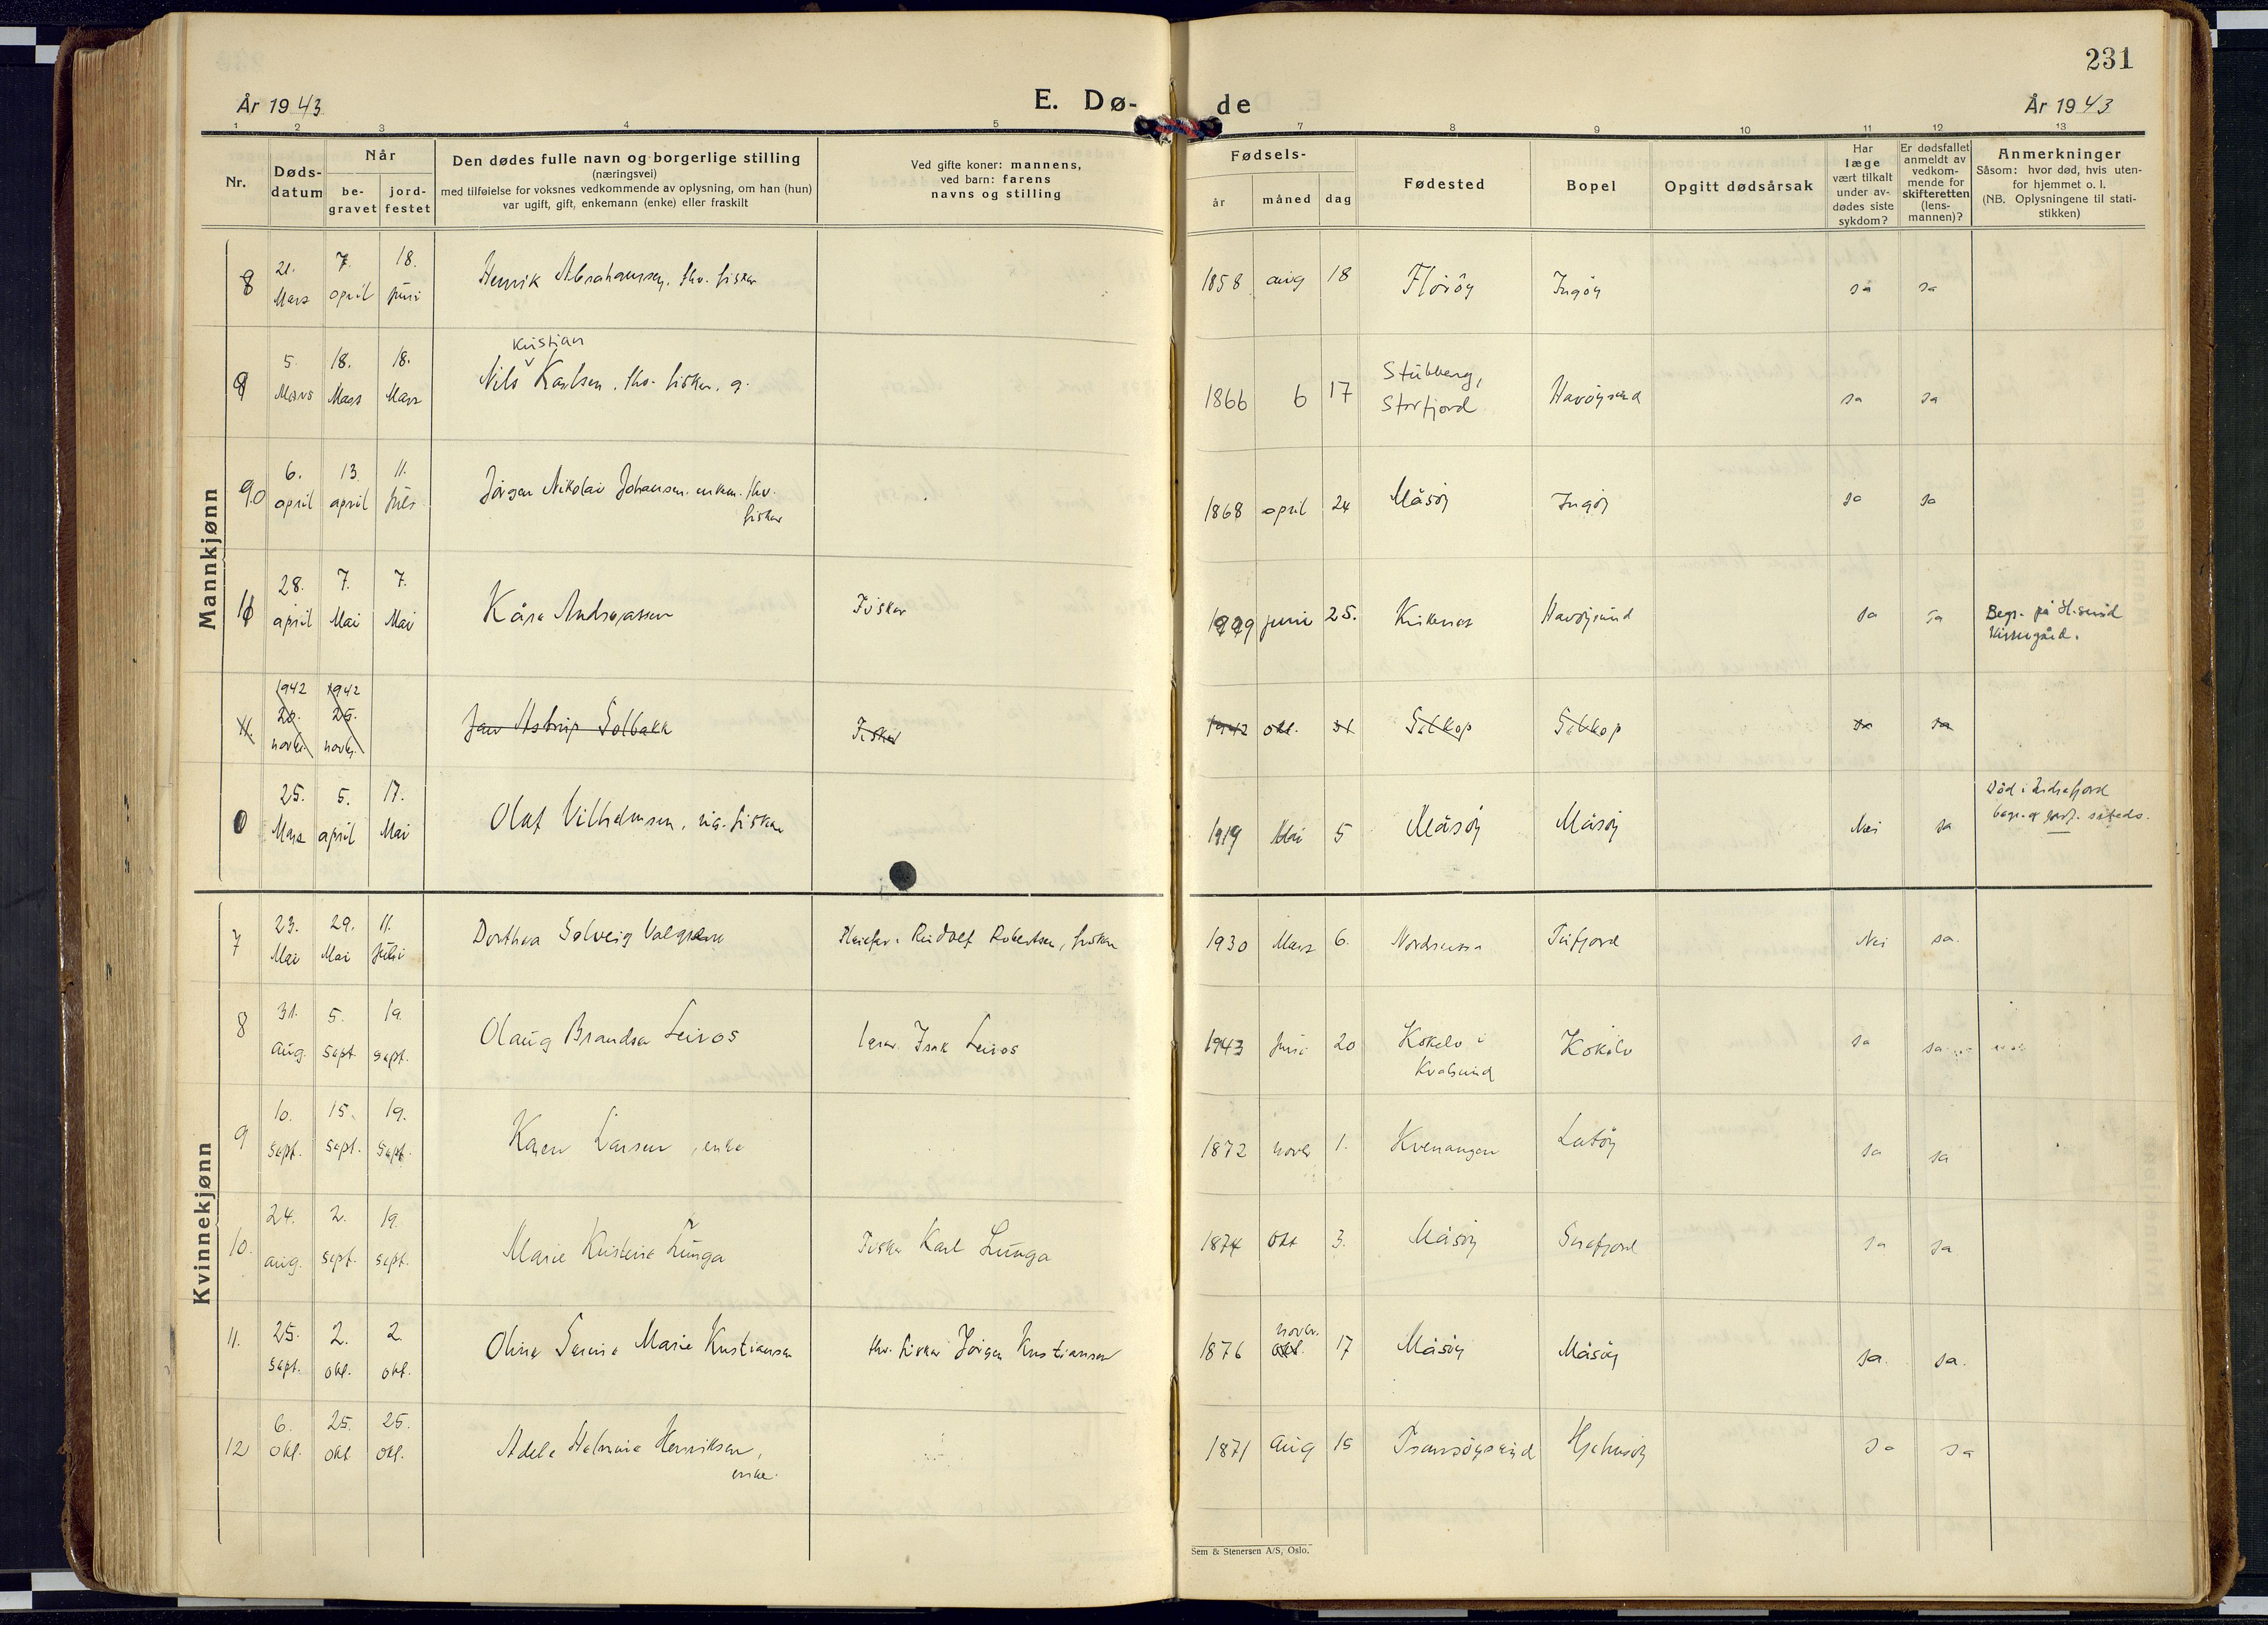 231
År 1943 E. Dø- de År 1943
1 2 3 4 5 7 8 9 10 11 12 13
Nr.
Døds-
datum
Når
be-
gravet
jord-
festet
Den dødes fulle navn og borgerlige stilling
(næringsvei)
med tilføielse for voksnes vedkommende av oplysning, om han (hun)
var ugift, gift, enkemann (enke) eller fraskilt
Ved gifte koner: mannens,
ved barn: farens
navns og stilling
Fødsels-
år måned dag
Fødested
Bopel
Opgitt dødsårsak
Har
læge
vært tilkalt
under av-
dødes siste
sykdom?
Er dødsfallet
anmeldt av
vedkom-
mende for
skifteretten
(lens-
mannen)?
Anmerkninger
Såsom: hvor død, hvis uten-
for hjemmet o. l.
(NB. Oplysningene til stati-
stikken)
Mannkjønn
8 21. Mars 7. april 18. juni Henrik Abrahamsen, fhv. fisker 1858 aug 18 Florøy Ingøy ja ja
9 5. Mars 18. Mars 18. Mars Nils Kristian Karlsen, fhv. fisker, g. 1866 6 17 Stubberg, Storfjord Havøysund ja ja
90 6. april 13. april 11. juli Jørgen Nikolai Johansen. enkem. fhv. fisker 1868 april 24 Måsøy Ingøy ja ja
11 28. april 7. Mai 7. Mai Kåre Andreassen Fisker juni 25. Kirkenes Havøysund ja ja Begr. på H.sund Kirkegård.
11. 1942 20. novbr. 1942 25. novbr. Jan Astrup Solbakk Fisker 1942 okt. 31 Selkop Selkop ja ja
0 25. Mars 5. april 17. Mai Olaf Vilhelmsen, ug. fisker 1919 Mai 5 Måsøy Måsøy Nei ja Død i Indrefjord begr. og jordf. såteds.
Kvinnekjønn
7 23. Mai 29. Mai 11. juli Dorthea Solveig Pleiefar: Rudolf Robertsen, fisker 1930 Mars 6. Tufjord Nei ja.
8 31. aug. 5. sept. 19. sept. Olaug Leiros lærer Isak Leiros 1943 juni 20 Kokelv i Kvalsund Kokelv ja ja
9 10. sept. 15. sept. 19. sept. Karen Larsen, enke 1872 novbr 1. Kvenangen Latøy ja ja
10. 24. aug. 2. sept. 19. sept. Marie Kristine Lunga Fisker Karl Lunga 1874 okt 3. Måsøy Snefjord ja ja
11. 25. sept. 2. okt. 2. okt. Oline Marie Kristiansen fhv. fisker Jørgen Kristiansen 1876 novbr. okt. 17 Måsøy Måsøy ja. ja.
12 6. okt. 25. okt. 25. okt. Adele Halmine Henriksen, enke. 1871 aug 15 Tromsøysund Hjelmsøy ja ja
Sem & Stenersen A/S, Oslo.